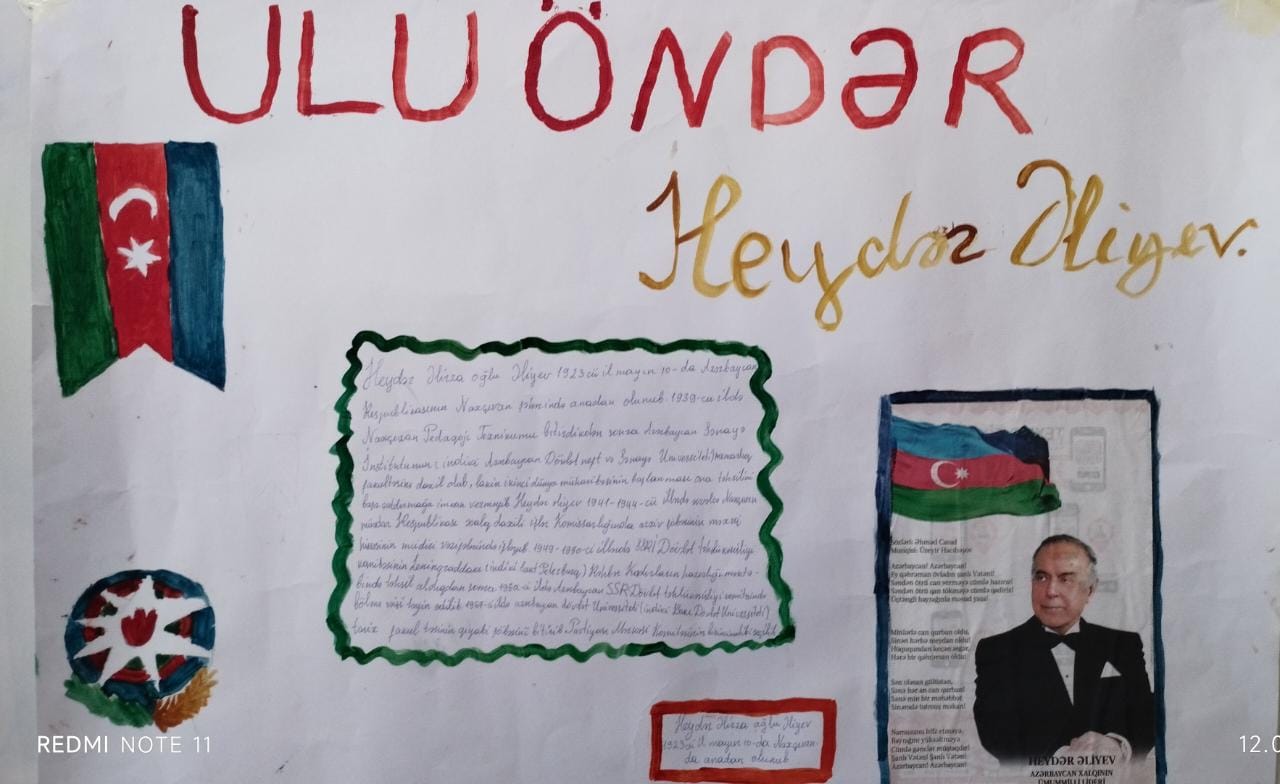 ULU ÖNDƏR
Heydər Əliyev.
Heydər Əlirza oğlu Əliyev 1923-cü il mayın 10-da Azərbaycan
Respublikasının Naxçıvan şəhərində anadan olunub. 1939-cu ildə
Naxçıvan Pedaqoji Texnikumu bitirdikdən sonra Azərbaycan Sənaye
İnstitutunun ( indiki Azərbaycan Dövlət neft və Sənaye Universiteti)
fakultəsinə daxil olub, lakin ikinci dünya müharibəsinin başlanması ona təhsilini
başa vurmağa imkan verməyib Heydər Əliyev 1941-1944-cü illərdə Naxçıvan
Respublikası xalq daxili işlər Komissarlığında arxiv şöbəsinin məxfi
hissəsinin müdiri vəzifəsində işləyib. 1949-1950-ci illərdə SSRİ Dövlət təhlükəsizliyi
Leninqraddakı (indiki Sankt Peterburq) Rəhbər Kadrların hazırlığı məktə-
bində təhsil alandan sonra 1950-ci ildə Azərbaycan SSR Dövlət təhlükəsizliyi komitəsində
bölmə rəisi təyin edilib 1957-ci ildə azərbaycan dövlət Universiteti (indiki Bakı Dövlət Universiteti)
tarix fakultəsinin qiyabi şöbəsini bitirib. Partiyası Mərkəzi Komitəsinin
Heydər Əlirza oğlu Əliyev
1923-cü il mayın 10-da Naxçıvan-
da anadan olunub
Sözləri: Əhməd Cavad
Musiqisi: Üzeyir Hacıbəyov
Azərbaycan! Azərbaycan!
Ey qəhrəman övladın şanlı Vətəni!
Səndən ötrü can verməyə cümlə hazırız!
Səndən ötrü qan tökməyə cümlə qadiriz!
Üçrəngli bayrağınla məsud yaşa!
Minlərlə can qurban oldu,
Sinən hərbə meydan oldu!
Hüququndan keçən əsgər,
Hərə bir qəhrəman oldu!
Sən olasan gülüstan,
Sənə hər an can qurban!
Sənə min bir məhəbbət
Sinəmdə tutmuş məkan!
Namusunu hifz etməyə,
Bayrağını yüksəltməyə
Cümlə gənclər müştaqdır!
Şanlı Vətən! Şanlı Vətən!
Azərbaycan! Azərbaycan!
HEYDƏR ƏLİYEV
AZƏRBAYCAN XALQININ
ÜMUMMİLLİ LİDERİ
REDMI NOTE 11
12.0